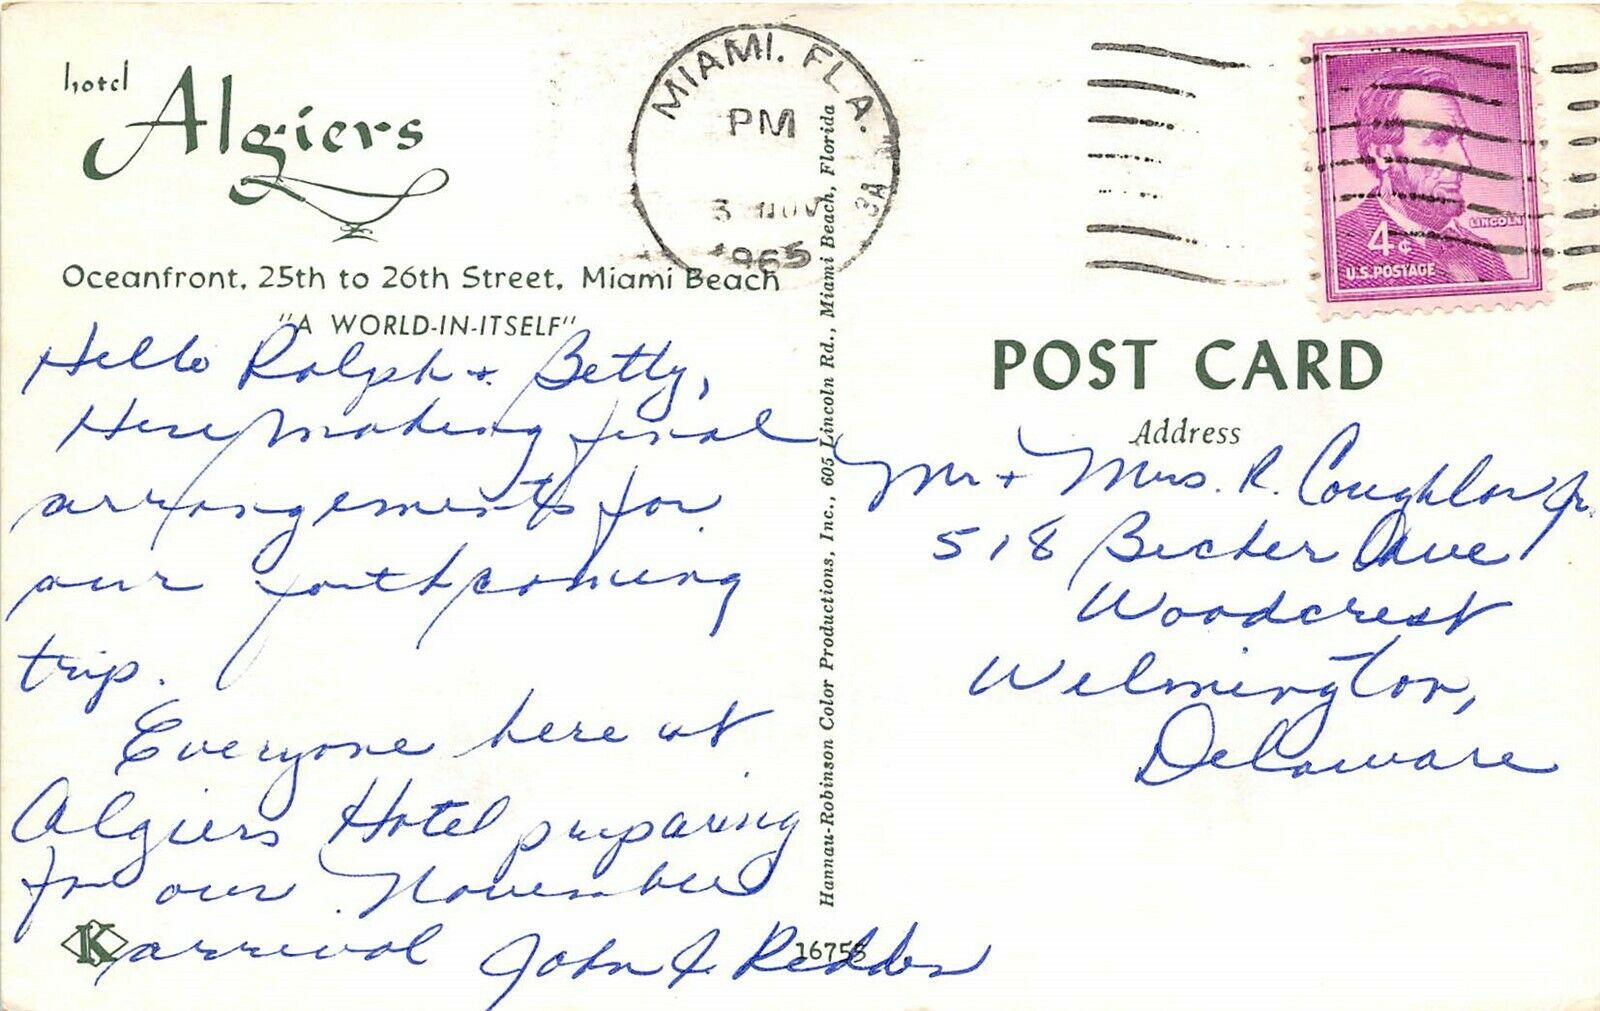 hotel
Algiers
Oceanfront, 25th to 26th Street, Miami Beach
"A WORLD-IN-ITSELF"
Hello Ralph + Betty,
Here making final
arrangements for
our forthcoming
trip.
Everyone here at
Algiers Hotel preparing
for our November
arrival John J. Redden
K
16755
Hannau-Robinson Color Productions, Inc., 605 Lincoln Rd., Miami Beach, Florida
MIAMI, FLA.
PM
NOV
1965
LINCOLN
4¢
U.S. POSTAGE
POST CARD
Address
Mr + Mrs. R. Coughlan Jr.
518 Becker Ave
Woodcrest
Wilmington,
Delaware